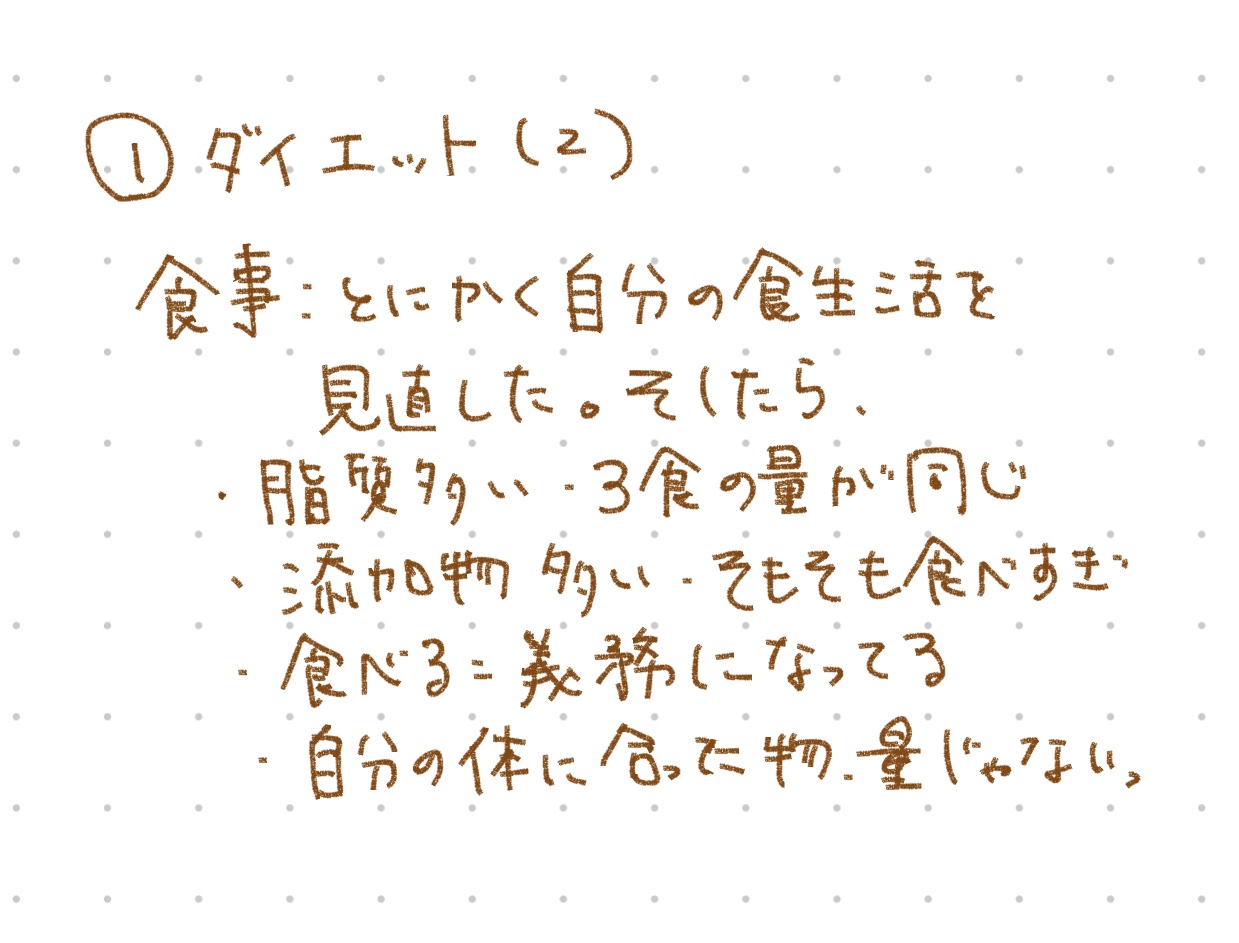 ① ダイエット(2)
食事:とにかく自分の食生活を
見直した。そしたら、
・脂質多い ・3食の量が同じ
・添加物多い ・そもそも食べすぎ
・食べる=義務になってる
・自分の体に合った物・量じゃない。